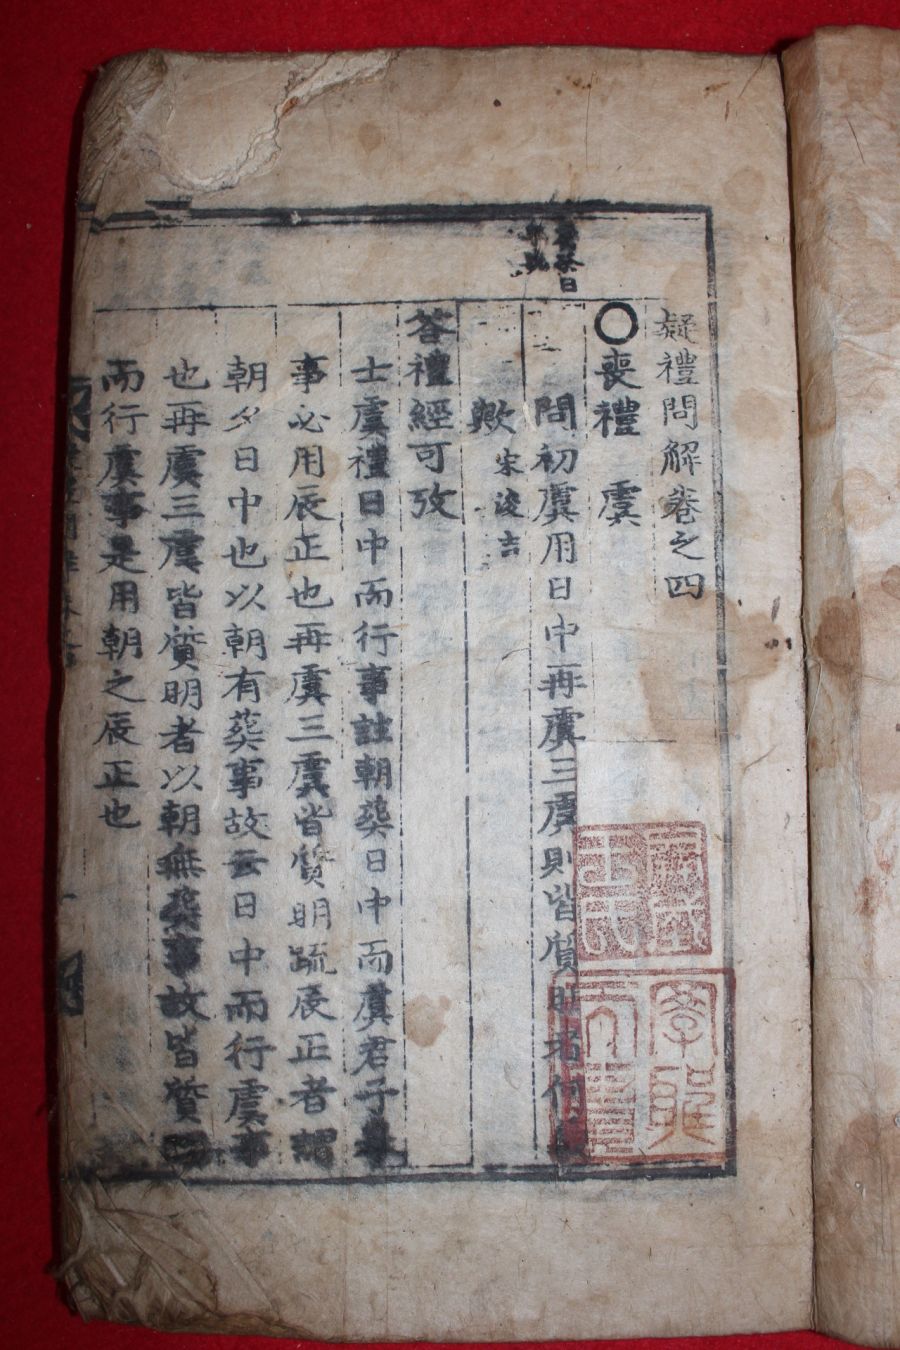 疑禮問解卷之四
○喪禮 虞
問初虞用日中再虞三虞則皆質明者何
歟 宋浚吉
答禮經可攷
士虞禮日中而行事註朝葬日中而虞君子擧
事必用辰正也再虞三虞皆質明疏辰正者謂
朝夕日中也以朝有葬事故云日中而行虞事
也再虞三虞皆質明者以朝無葬事故皆質明
而行虞事是用朝之辰正也